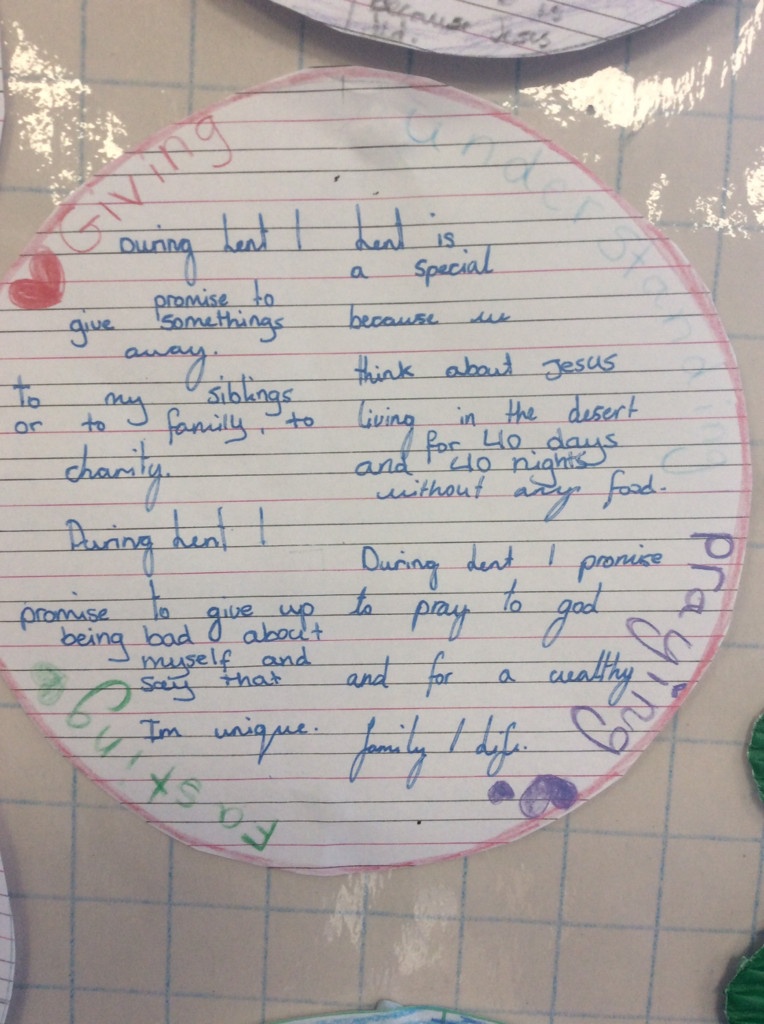 because Jesus
Giving
During Lent I
promise to
give somethings
away.
to my siblings
or to family, to
charity.
understanding
Lent is
a special
because we
think about Jesus
living in the desert
for 40 days
and 40 nights
without any food.
During Lent I
promise to give up
being bad about
myself and
say that
Im unique.
Fasting
During Lent I promise
to pray to god
and for a wealthy
family / life.
praying